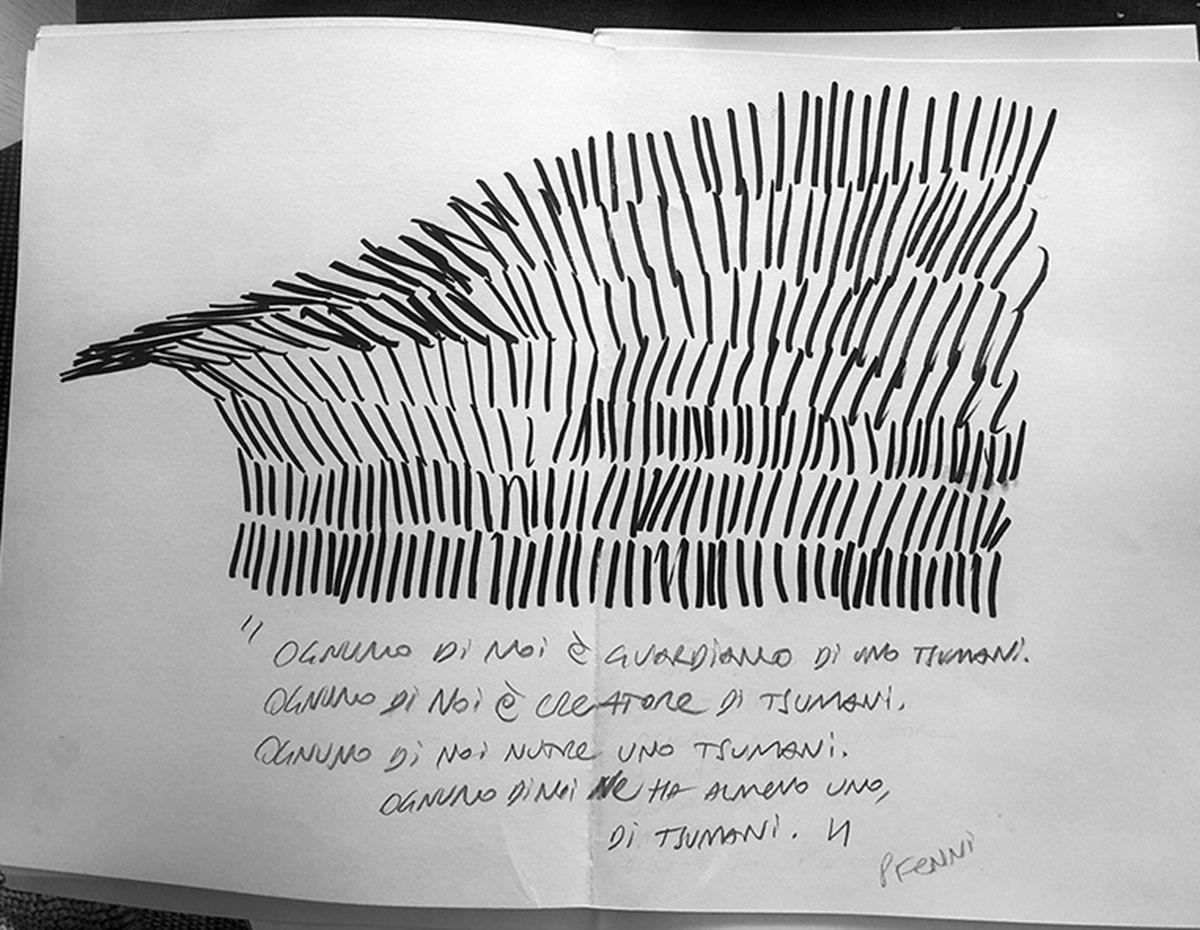 " OGNUNO Di NOi È GUARDIANO Di UNO TSUNAMi.
OGNUNO Di NOi È CREATORE Di TSUNAMi.
OGNUNO Di NOi NUTRE UNO TSUNAMi.
OGNUNO Di NOi NE HA ALMENO UNO,
Di TSUNAMi. "
PFENNi